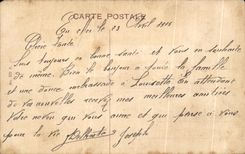 CARTE POSTALE
le 23 Avril 1916
Chère tante
Suis toujours en bonne santé et vous en souhaite
de même. Bien le bonjour à toute la famille
et une douce caresse à Louisette. En attendant
de vos nouvelles recevez mes meilleures amitiés
Votre neveu qui vous aime et qui pense à vous
pour la vie Joseph